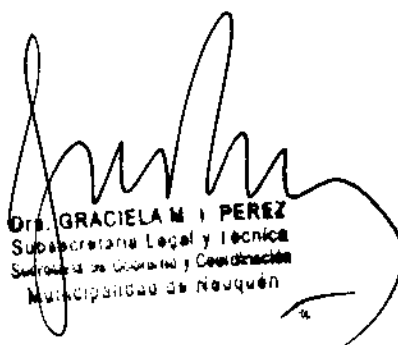 Dra. GRACIELA M. I. PEREZ
Subsecretaria Legal y Técnica
Secretaría de Gobierno y Coordinación
Municipalidad de Neuquén